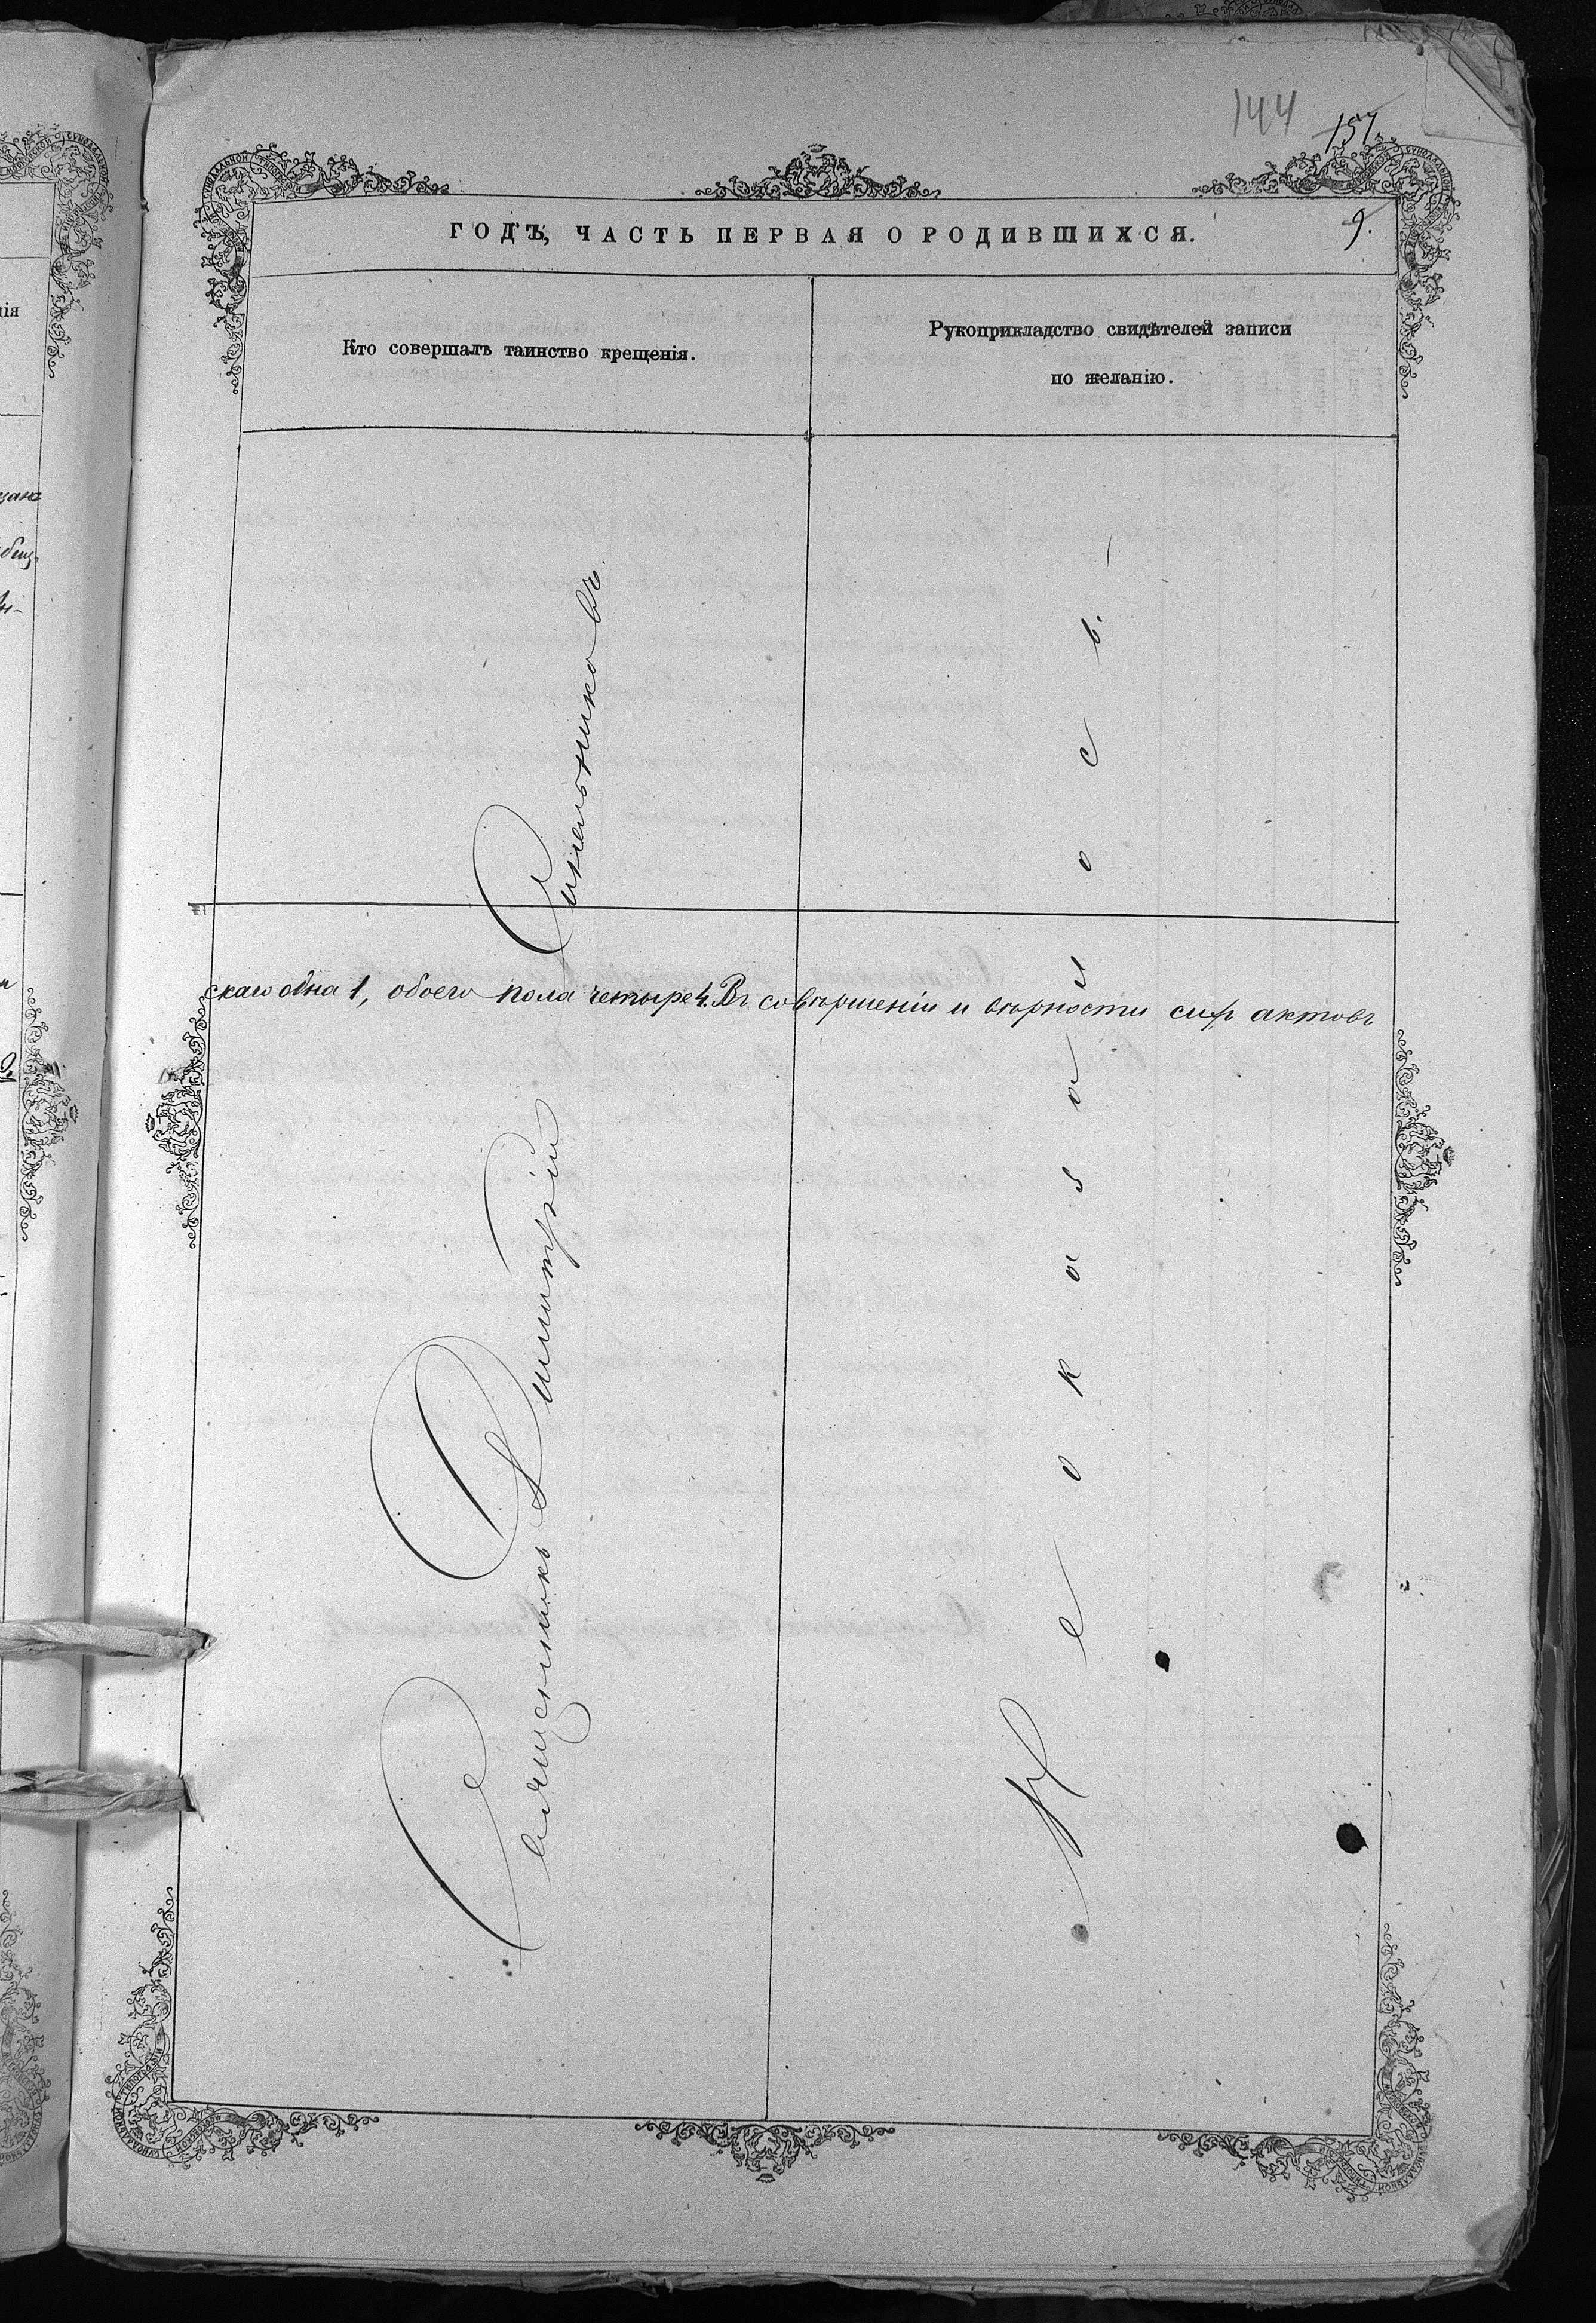 144
157
ГОДЪ, ЧАСТЬ ПЕРВАЯ О РОДИВШИХСЯ.
9.
Кто совершалъ таинство крещенія.
Рукоприкладство свидѣтелей записи
по желанію.
Священникъ Димитрій Синельниковъ.
Не оказалось.
скаго одна 1, обоего пола четыре 4. Въ совершеніи и вѣрности сихъ актовъ